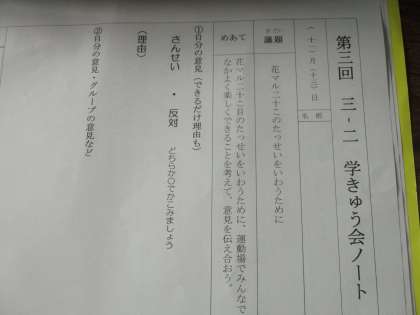 第三回 三-二 学きゅう会ノート
(十一)月(十三)日
名前
ぎだい
議題
花マル二十このたっせいをいわうために
めあて
花マル二十こ目のたっせいをいわうために、運動場でみんなで
なかよく楽しくできることを考えて、意見を伝え合おう。
①自分の意見(できるだけ理由も)
さんせい ・ 反対 どちらか○でかこみましょう
(理由)
②自分の意見・グループの意見など